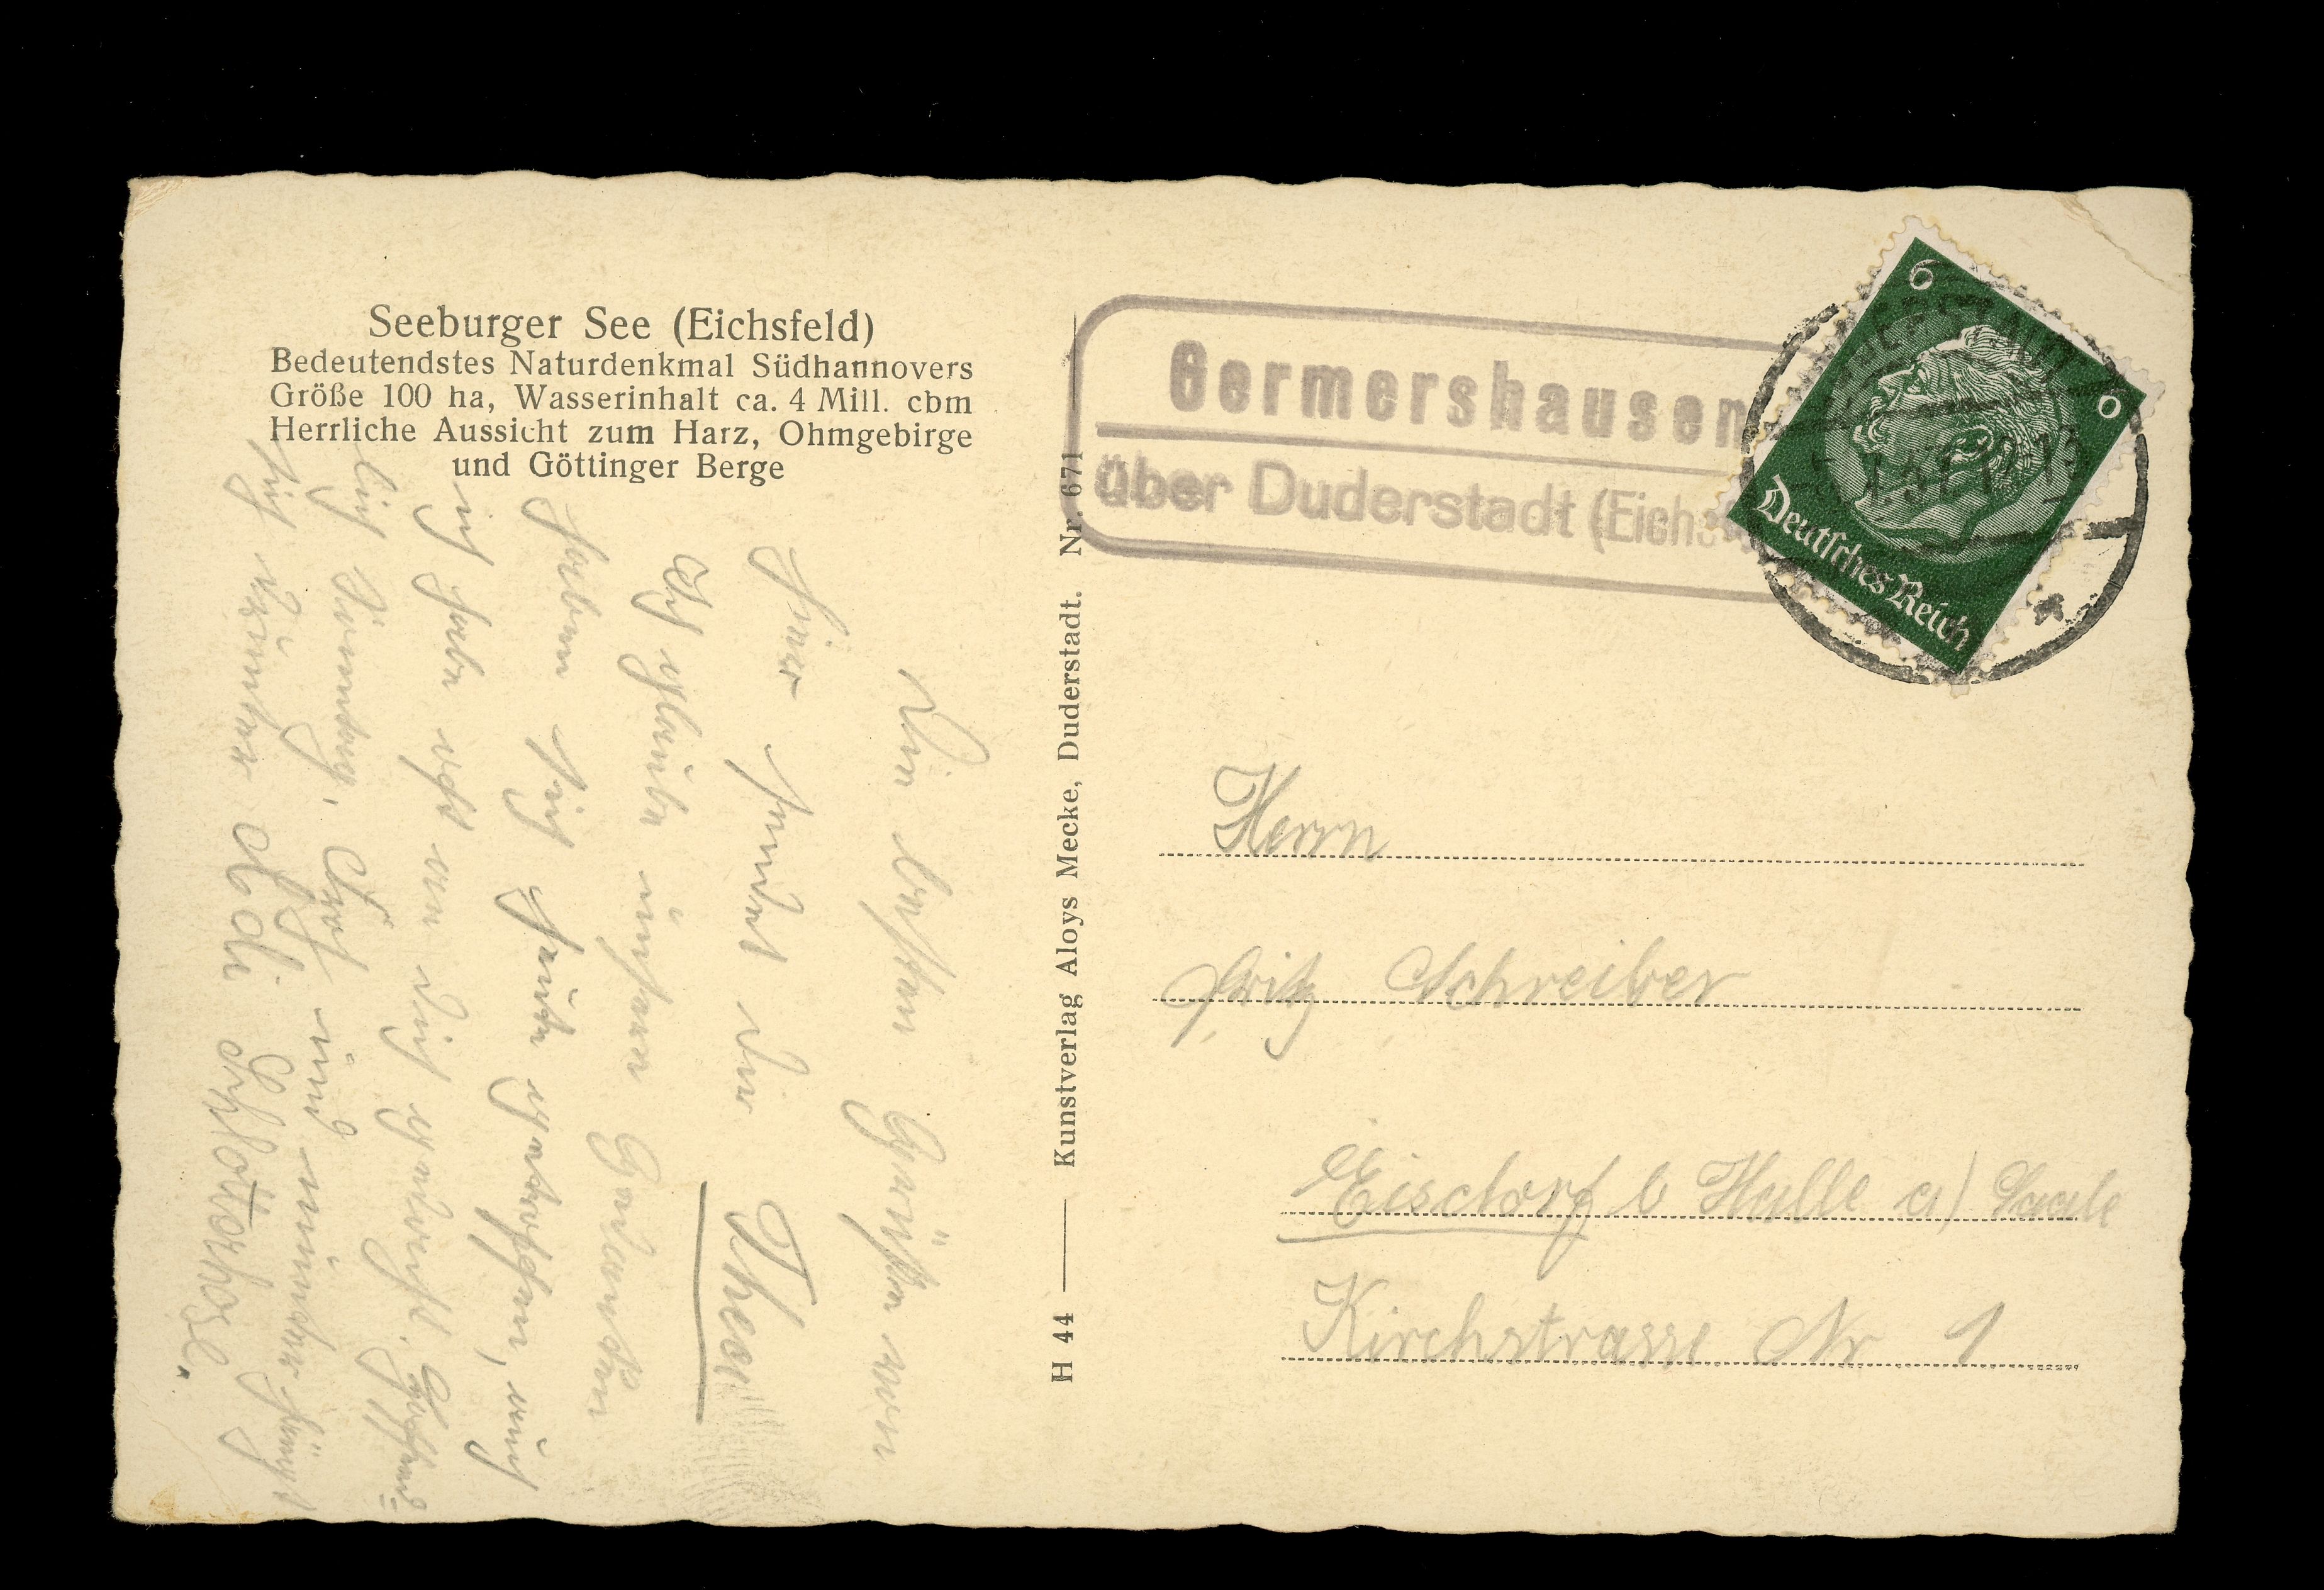 Seeburger See (Eichsfeld)
Bedeutendstes Naturdenkmal Südhannovers
Größe 100 ha, Wasserinhalt ca. 4 Mill. cbm
Herrliche Aussicht zum Harz, Ohmgebirge
und Göttinger Berge
Die besten Grüße von
hier sendet Dir Theo
Ich glaube unsere Gedanken
haben sich heute getroffen, auch
ich habe oft an dich gedacht. Hoffent=
lich Sonntag.
H 44 — Kunstverlag Aloys Mecke, Duderstadt. Nr. 671
Germershausen
über Duderstadt (Eichs
6 6
Deutsches Reich
Herrn
Fritz Schreiber
Eisdorf b Halle a/ Saale
Kirchstrasse Nr 1